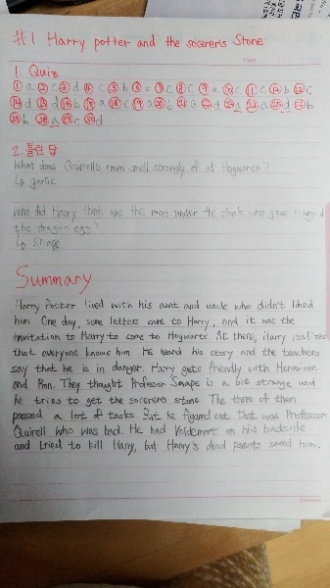 #1 Harry potter and the socerer's Stone
1. Quiz
① a ② c ③ d ④ c ⑤ b ⑥ a ⑦ c ⑧ c ⑨ a ⑩ c ⑪ c ⑫ b ⑬ c
2. 틀린 답
What does Quirell's room smell strongly of at Hogwarts?
↳ garlic
Who did Harry think was the man under the cloak who gave Hagrid
the dragon egg?
↳ Snape
Summary
Harry Potter lived with his aunt and uncle who didn't liked
him. One day, some letters came to Harry, and it was the
invitation to Harry to come to Hogwarts. At there, Harry realizes
that everyone knows him. He heard his story and the teachers
say that he is in danger. Harry gets friendly with Hermione
and Ron. They thought Professor Snape is a bit strange and
he tries to get the sorcerers stone. The three of them
passed a lot of tasks but he figured out that was Professor
Quirell who was bad. He had Voldemort on his backside
and tried to kill Harry, but Harry's dead parents saved him.